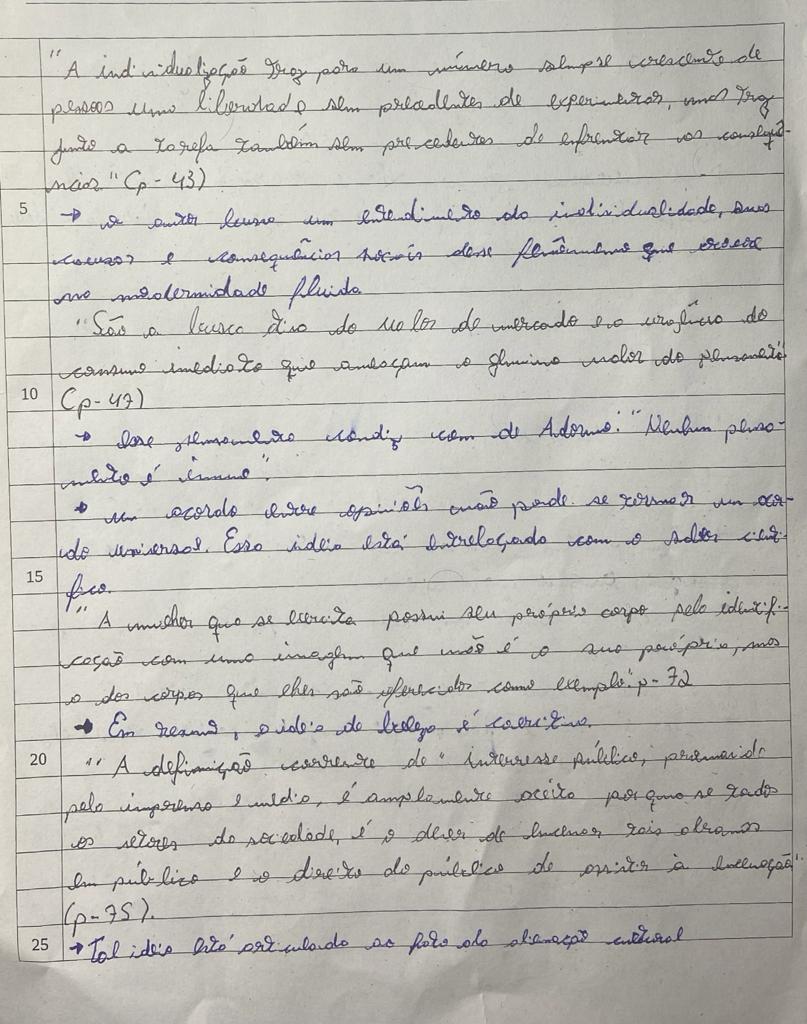 "A individualização traz para um número sempre crescente de
pessoas uma liberdade sem precedentes de experimentar, mas traz
junto a tarefa também sem precedentes de enfrentar as consequê-
ncias." (p-43)
5 → o autor busca um entendimento da individualidade, suas
causas e consequências sociais desse fenômeno que cresce
na modernidade fluida.
"São a busca do valor de mercado e o do
consumo imediato que ameaçam o genuino valor do pensamento
10 (p-47)
→ Esse pensamento condiz com de Adorno: "Nenhum pensa-
mento é imune".
→ um acordo entre opiniões não pode se tornar um acor-
do universal. Essa ideia está entrelaçado com o saber cient-
15 fico.
"A mulher que se exercita possui seu próprio corpo pela identifi-
cação com uma imagem que não é o sua próprio, mas
a dos corpos que lhes são oferecidos como exemplo". p-72
→ Em resumo, a ideia de beleza é coercitiva.
20 "A definição corrente de "interresse público, promovida
pela imprensa e média, é amplamente aceita por quase todos
os setores da sociedade, é o dever de encenar tais dramas
em público e o direito do público de assistir à encenação".
(p-75).
25 → Tal ideia está articulado ao fato da alienação cultural